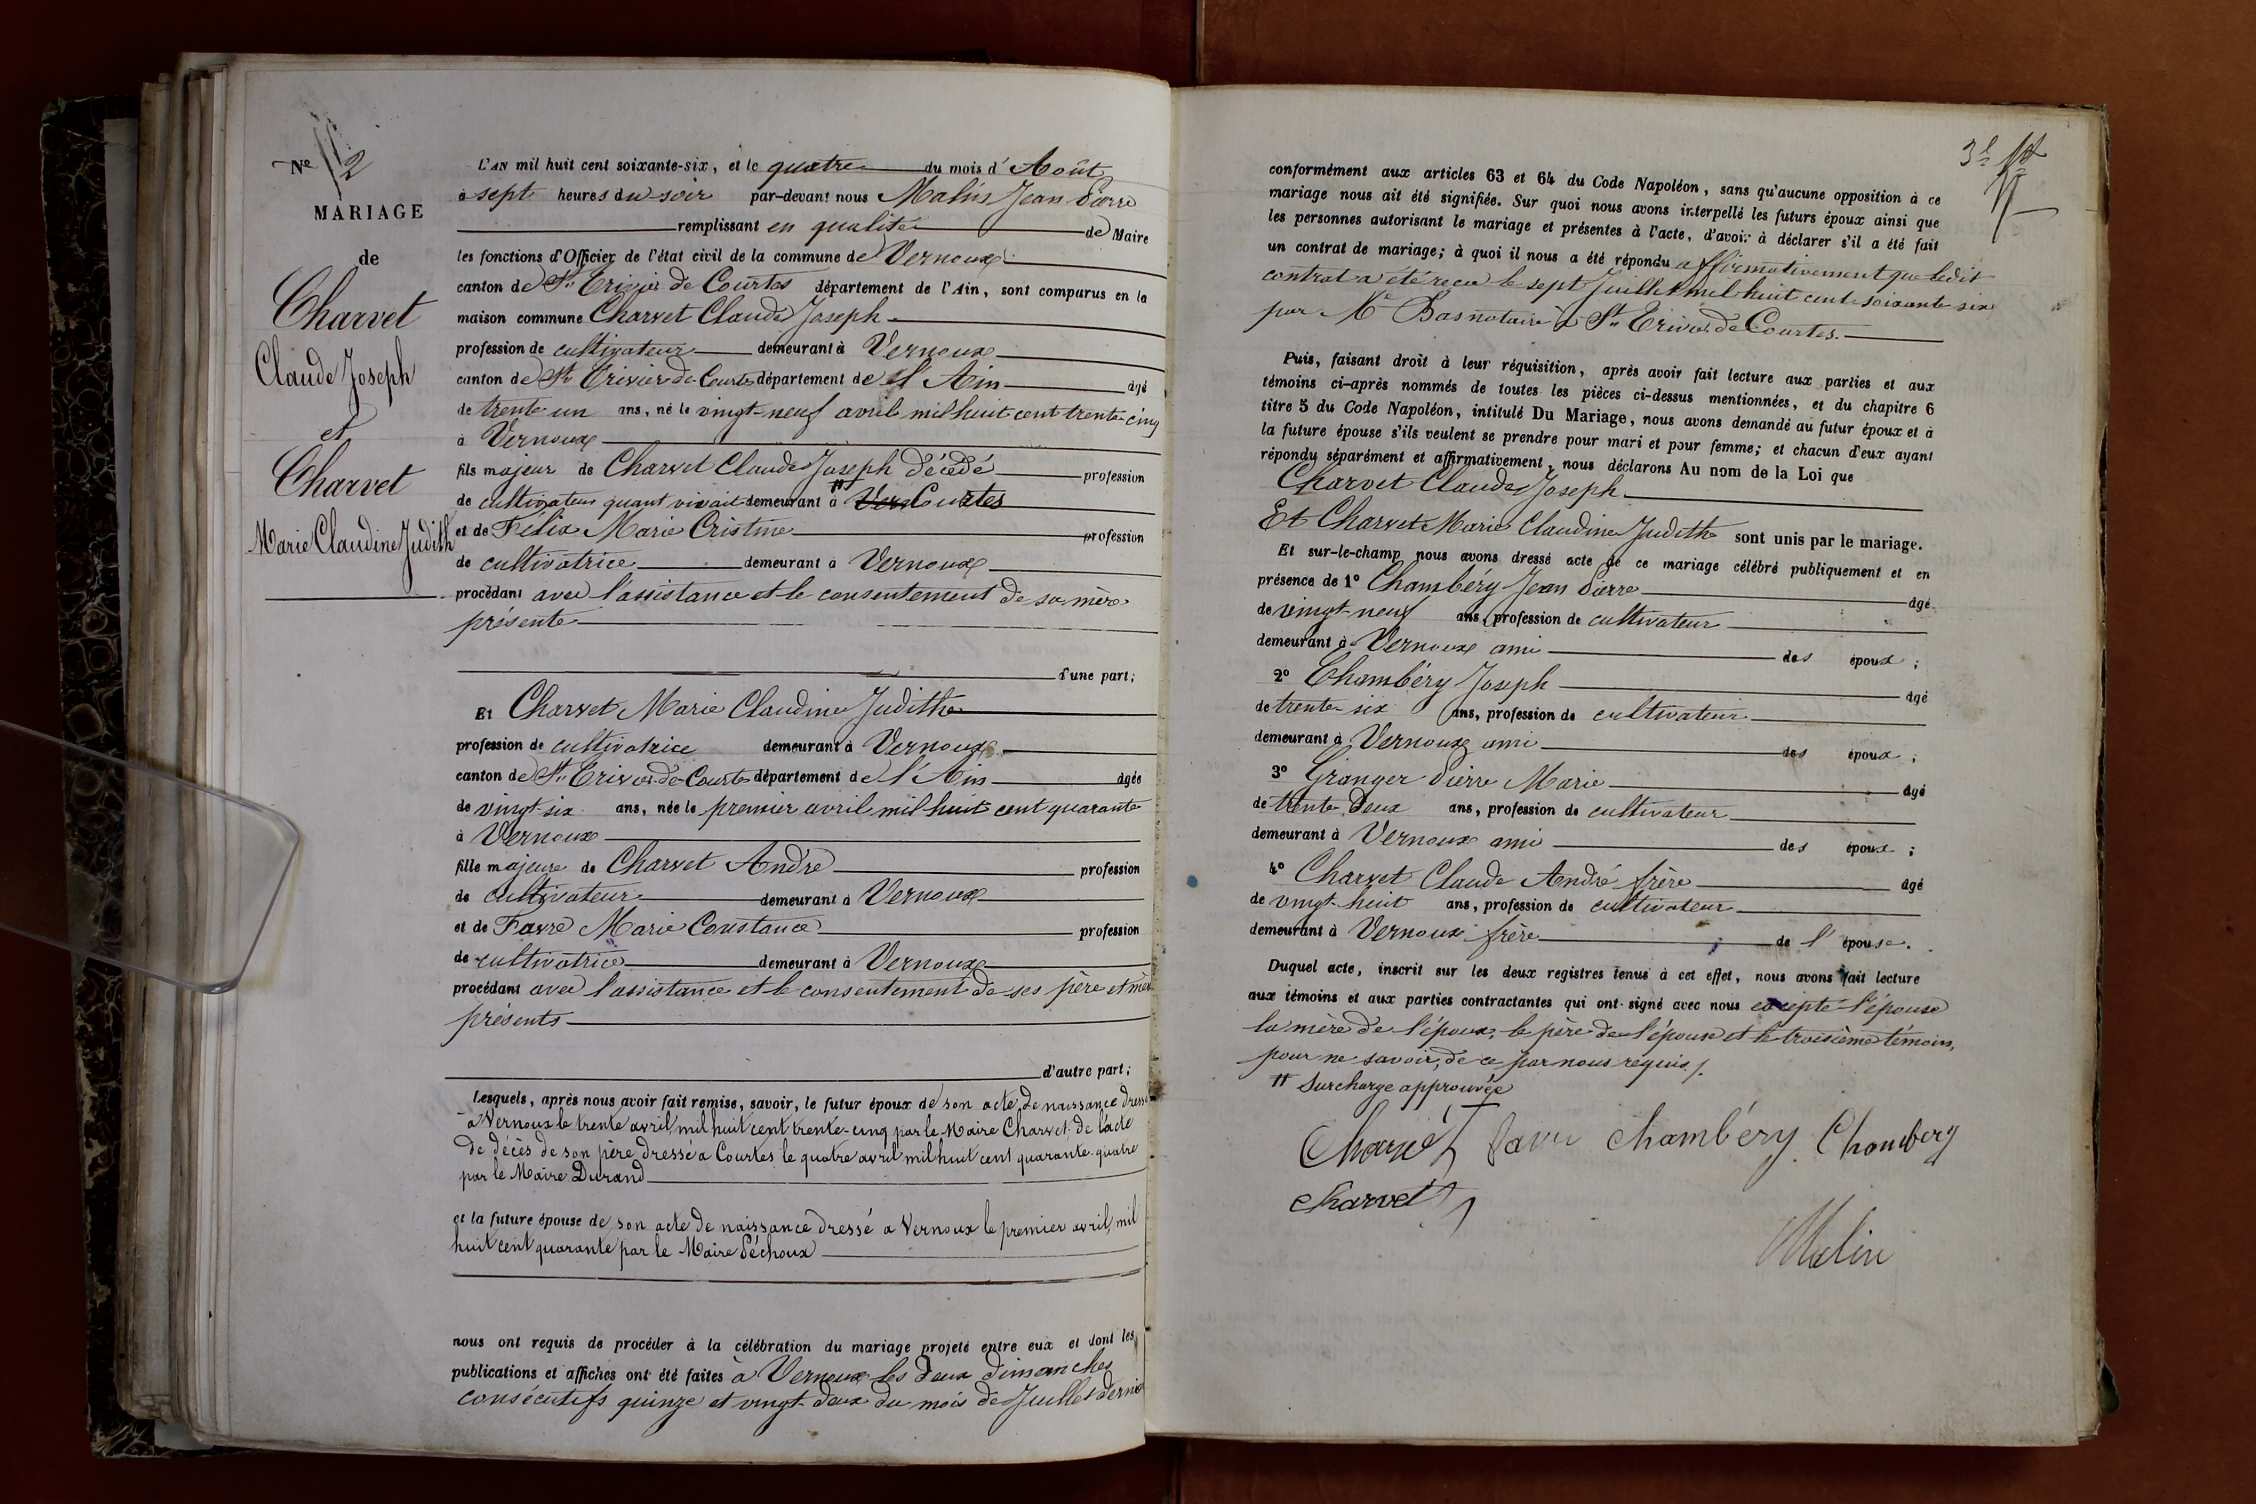 N° 12
MARIAGE
de
Charvet
Claude Joseph
et
Charvet
Marie Claudine Judith
L'AN mil huit cent soixante-six, et le quatre du mois d' Août
à sept heures du soir par-devant nous Malin Jean Pierre
remplissant en qualité de Maire
les fonctions d'Officier de l'état civil de la commune de Vernoux
canton de St Trivier de Courtes département de l'Ain, sont comparus en la
maison commune Charvet Claude Joseph
profession de cultivateur demeurant à Vernoux
canton de St Trivier de Courtes département de l'Ain âgé
de trente un ans, né le vingt-neuf avril mil huit cent trente-cinq
à Vernoux
fils majeur de Charvet Claude Joseph décédé profession
de cultivateur quant vivait demeurant à Courtes
et de Félix Marie Cristine profession
de cultivatrice demeurant à Vernoux
procédant avec l'assistance et le consentement de sa mère
présente
d'une part;
Et Charvet Marie Claudine Judith
profession de cultivatrice demeurant à Vernoux
canton de St Trivier de Courtes département de l'Ain âgée
de vingt-six ans, née le premier avril mil huit cent quarante
à Vernoux
fille majeure de Charvet André profession
de cultivateur demeurant à Vernoux
et de Favre Marie Constance profession
de cultivatrice demeurant à Vernoux
procédant avec l'assistance et le consentement de ses père et mère
présents
d'autre part;
Lesquels, après nous avoir fait remise, savoir, le futur époux de son acte de naissance dressé
à Vernoux le trente avril mil huit cent trente-cinq par le Maire Charvet, de l'acte
de décès de son père dressé à Courtes le quatre avril mil huit cent quarante-quatre
par le Maire Durand
et la future épouse de son acte de naissance dressé à Vernoux le premier avril mil
huit cent quarante par le Maire Péchoux
nous ont requis de procéder à la célébration du mariage projeté entre eux et dont les
publications et affiches ont été faites à Vernoux les deux dimanches
consécutifs quinze et vingt-deux du mois de Juillet dernier
conformément aux articles 63 et 64 du Code Napoléon, sans qu'aucune opposition à ce
mariage nous ait été signifiée. Sur quoi nous avons interpellé les futurs époux ainsi que
les personnes autorisant le mariage et présentes à l'acte, d'avoir à déclarer s'il a été fait
un contrat de mariage; à quoi il nous a été répondu affirmativement que ledit
contrat a été reçu le sept Juillet mil huit cent soixante six
par Me Bas notaire à St Trivier de Courtes.
Puis, faisant droit à leur réquisition, après avoir fait lecture aux parties et aux
témoins ci-après nommés de toutes les pièces ci-dessus mentionnées, et du chapitre 6
titre 5 du Code Napoléon, intitulé Du Mariage, nous avons demandé au futur époux et à
la future épouse s'ils veulent se prendre pour mari et pour femme; et chacun d'eux ayant
répondu séparément et affirmativement, nous déclarons Au nom de la Loi que
Charvet Claude Joseph
Et Charvet Marie Claudine Judith sont unis par le mariage.
Et sur-le-champ nous avons dressé acte de ce mariage célébré publiquement et en
présence de 1° Chambéry Jean Pierre âgé
de vingt-neuf ans, profession de cultivateur
demeurant à Vernoux ami des époux;
2° Chambéry Joseph âgé
de trente-six ans, profession de cultivateur
demeurant à Vernoux ami des époux;
3° Granger Pierre Marie âgé
de trente-deux ans, profession de cultivateur
demeurant à Vernoux ami des époux;
4° Charvet Claude André frère âgé
de vingt-huit ans, profession de cultivateur
demeurant à Vernoux frère de l'épouse.
Duquel acte, inscrit sur les deux registres tenus à cet effet, nous avons fait lecture
aux témoins et aux parties contractantes qui ont signé avec nous excepté l'épouse
la mère de l'époux, le père de l'épouse et le troisième témoin,
pour ne savoir, de ce par nous requis /.
# Surcharge approuvée
Charvet Favre Chambéry Chambery
Charvet
Malin